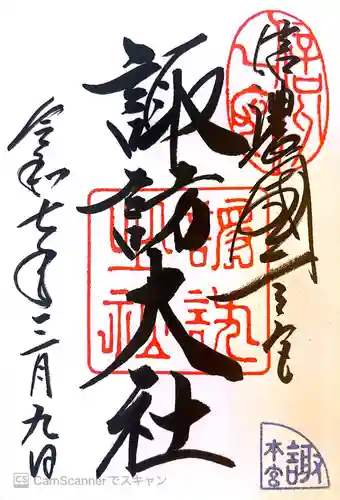 信濃國一之宮
諏訪大社
令和七年三月九日
諏
本宮
CS CamScanner でスキャン